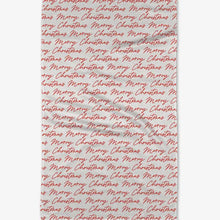 Merry Christmas Merry Christmas Merry Christmas
Merry Christmas Merry Christmas Merry Christmas
Merry Christmas Merry Christmas Merry Christmas
Merry Christmas Merry Christmas Merry Christmas
Merry Christmas Merry Christmas Merry Christmas
Merry Christmas Merry Christmas Merry Christmas
Merry Christmas Merry Christmas Merry Christmas
Merry Christmas Merry Christmas Merry Christmas
Merry Christmas Merry Christmas Merry Christmas
Merry Christmas Merry Christmas Merry Christmas
Merry Christmas Merry Christmas Merry Christmas
Merry Christmas Merry Christmas Merry Christmas